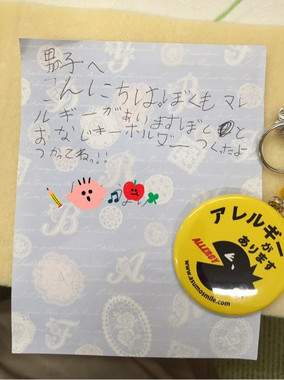 男子へ
こんにちは。ぼくも アレ
ルギーがあります ぼくと
おなじキーホルダー つくたよ
つかってねっ!!
アレルギー
が
あります
ALLERGY
www.asumosmile.com